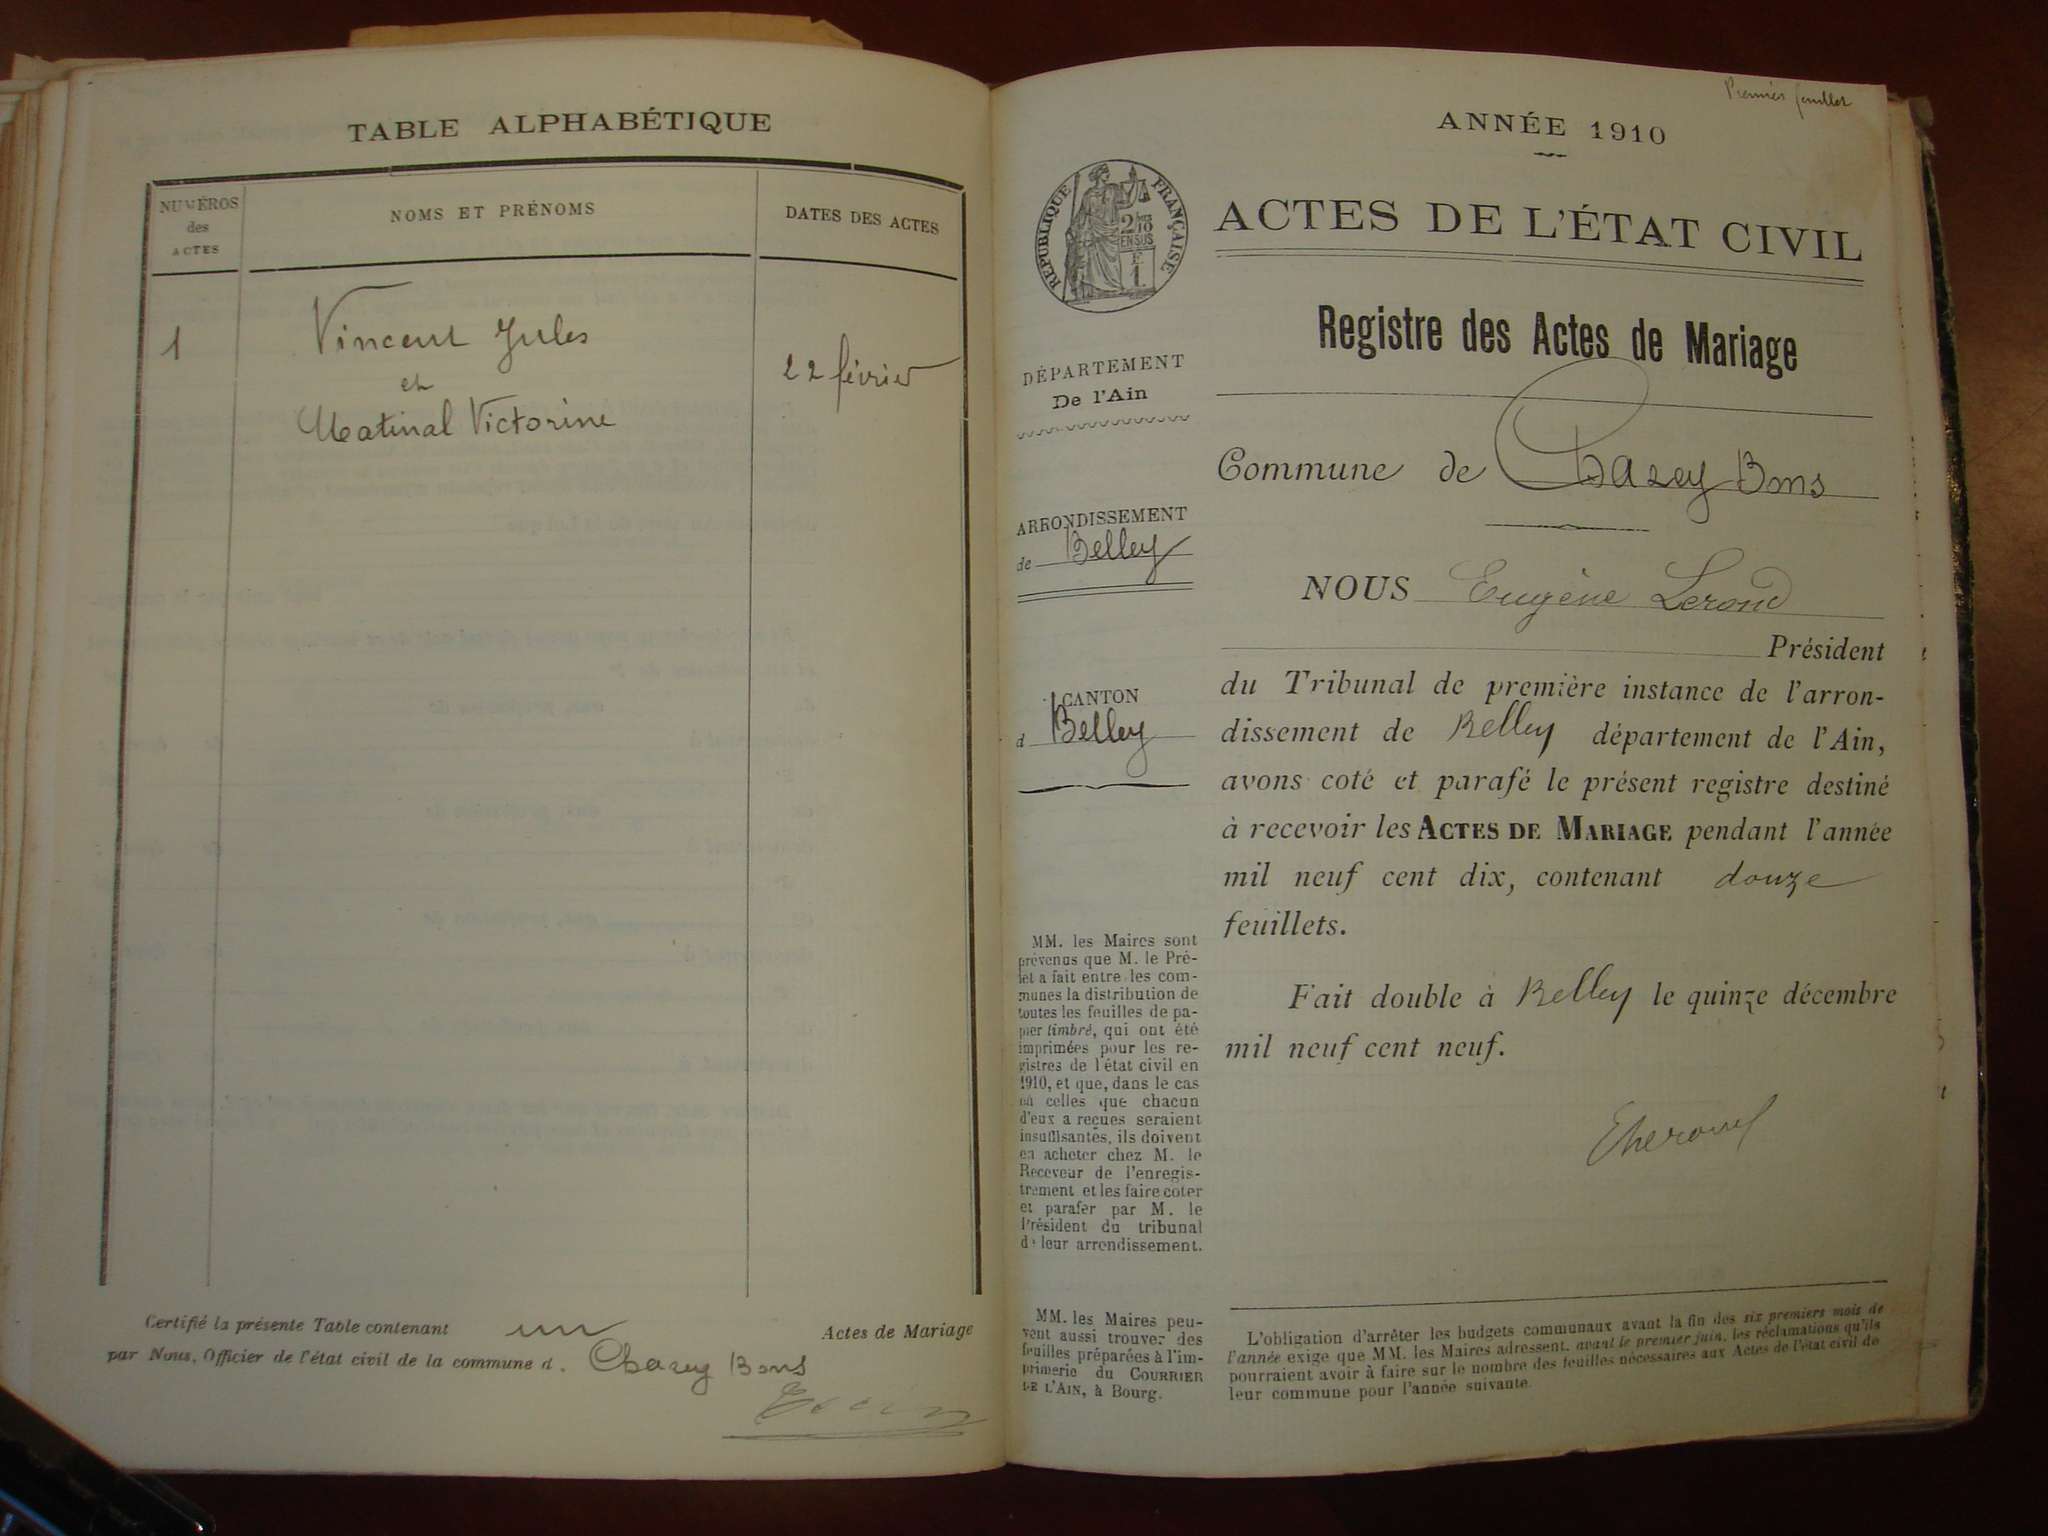 TABLE ALPHABÉTIQUE
NUMÉROS
des
ACTES
NOMS ET PRÉNOMS
DATES DES ACTES
1
Vincent Jules
et
Matinal Victorine
22 février
Certifié la présente Table contenant un Actes de Mariage
par Nous, Officier de l'état civil de la commune d. Chazey Bons
Premier feuillet
ANNÉE 1910
RÉPUBLIQUE FRANÇAISE
ACTES DE L'ÉTAT CIVIL
Registre des Actes de Mariage
DÉPARTEMENT
De l'Ain
ARRONDISSEMENT
de Belley
CANTON
d Belley
Commune de Chazey Bons
NOUS Eugène Lerond
Président
du Tribunal de première instance de l'arron-
dissement de Belley département de l'Ain,
avons coté et parafé le présent registre destiné
à recevoir les ACTES DE MARIAGE pendant l'année
mil neuf cent dix, contenant douze
feuillets.
Fait double à Belley le quinze décembre
mil neuf cent neuf.
MM. les Maires sont
prévenus que M. le Pré-
fet a fait entre les com-
munes la distribution de
toutes les feuilles de pa-
pier timbré, qui ont été
imprimées pour les re-
gistres de l'état civil en
1910, et que, dans le cas
où celles que chacun
d'eux a reçues seraient
insuffisantes, ils doivent
en acheter chez M. le
Receveur de l'enregis-
trement et les faire coter
et parafer par M. le
Président du tribunal
de leur arrendissement.
MM. les Maires peu-
vent aussi trouver des
feuilles préparées à l'im-
primerie du COURRIER
DE L'AIN, à Bourg.
L'obligation d'arrêter les budgets communaux avant la fin des six premiers mois de
l'année exige que MM. les Maires adressent, avant le premier juin, les réclamations qu'ils
pourraient avoir à faire sur le nombre des feuilles nécessaires aux Actes de l'état civil de
leur commune pour l'année suivante.